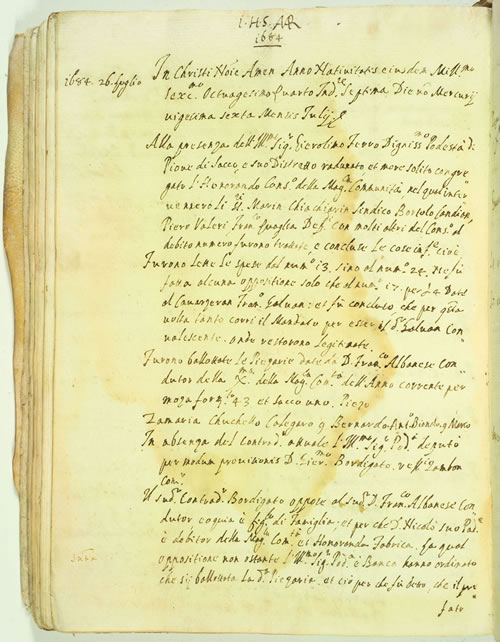 I.H.S.
1684
1684. 26. luglio
In Christi Noie Amen Anno Nativitatis eiusdem Mill.mo
sexc.mo Octuagesimo Quarto Ind.e Septima Die vero Mercurij
vigesima sexta Mensis Julij
Alla presenza dell' Ill.mo Sig.r Gierolimo Ferro Digniss.mo Podestà di
Piove di Sacco, e suo Distretto radunato et more solito congre
gato l'Honorando Cons.o della Mag.ca Communità nel qual inter
vennero li SS.ri Marin Chiachiprin Sindico Bortolo
Piero Valeri Fran.co Quaglia Def.ri con molti altri del Cons.o al
debito numero furono trattate, e concluse le cose inf.te cioè
Furono lette le spese dal num.o 13. sino al num.o 24. Ne fù
fatta alcuna oppositione solo che al num.o 17. per £ 4. Date
al Cavargeran Fran.co Galvan: et fù concluso che per q.sta
volta tanto corri il Mandato per esser il d.o Galvan Con
valescente. onde restorono legitimate
Furono ballottate le Piegarie date da D. Fran.co Albanese Con
dutor della della Mag.ca Com.tà dell'Anno corrente per
moza 43 et sacco uno. Piezo
Zamaria Chuchello Calegaro q. Bernardo. Ant.o q. Marco
In absenza del Contrad.r attuale l'Ill.mo Sig.r Pod.à deputò
per modum provisionis D. Gier.mo Bordigato. Zambon
Com.r
Il sud.o Contrad.r Bordigato oppose al sud.o D. Fran.co Albanese Con
dutor di Famiglia; et per che D. Nicolò suo Pad.e
è debitor della Mag.ca Com.tà et Honoranda Fabrica. la qual
oppositione non ostante l'Ill.mo Sig.r Pod.à e Banca hanno ordinato
che sij ballottata la d.a Piegaria. et ciò per che fù detto, che il pre
fato